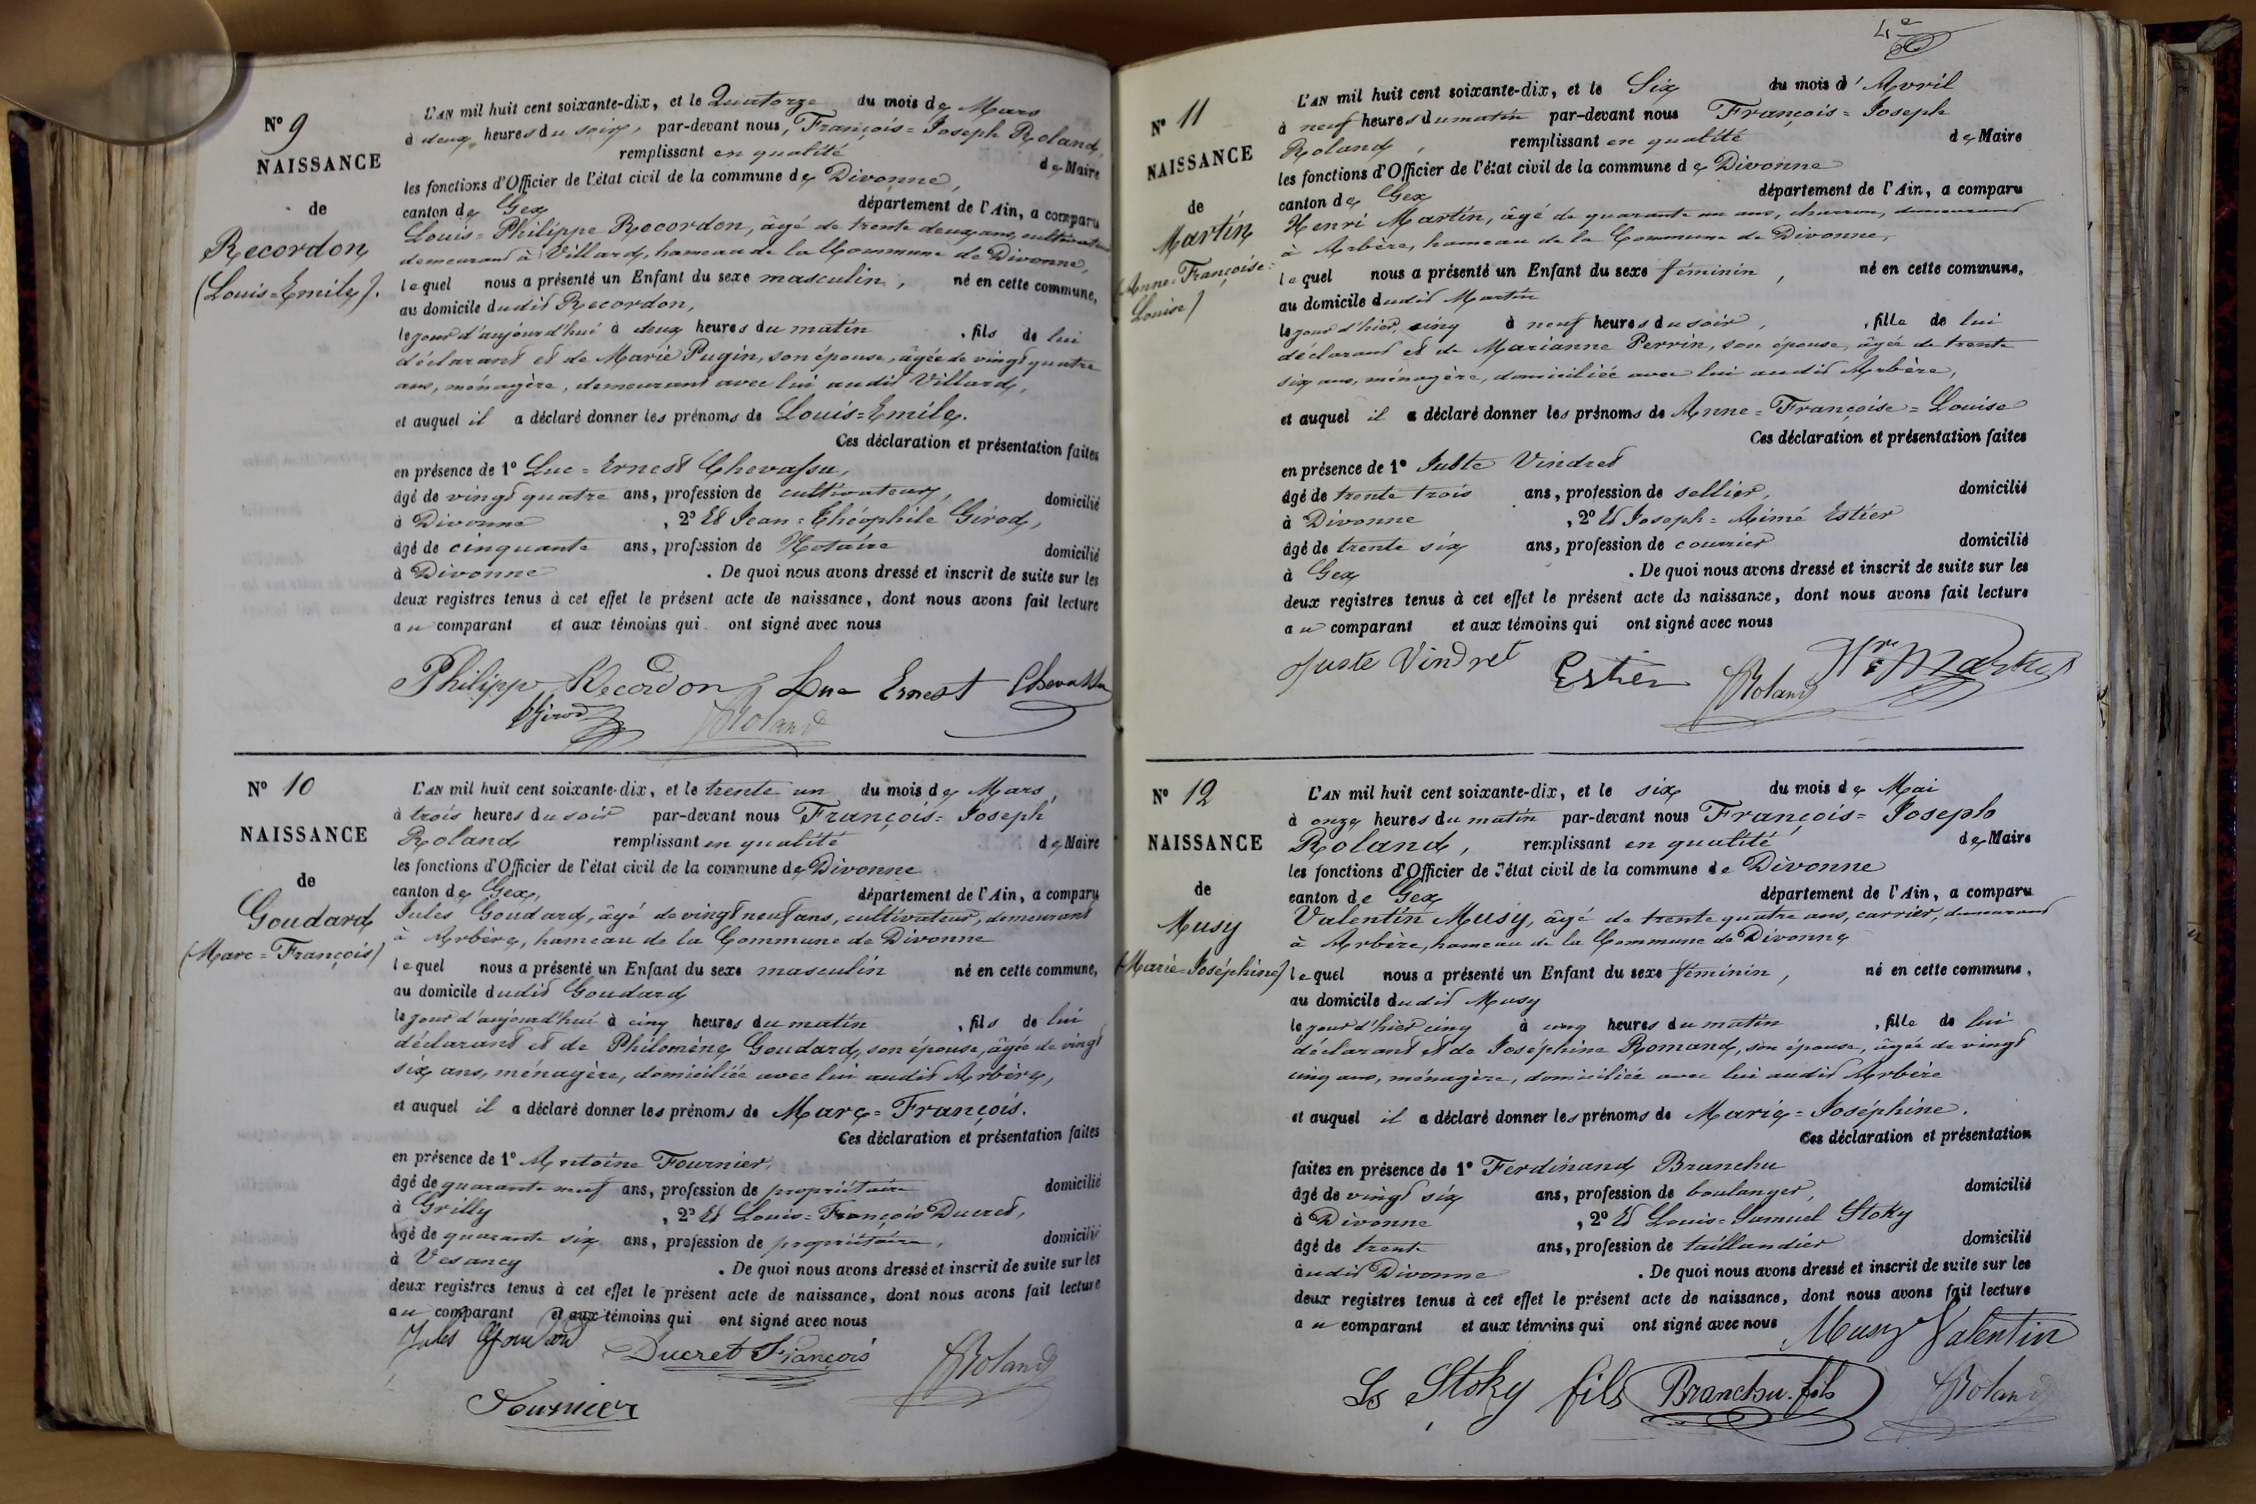 N° 9
NAISSANCE
de
Recordon
(Louis=Emile).
L'AN mil huit cent soixante-dix, et le Quatorze du mois de Mars
à deux heures du soir, par-devant nous, François=Joseph Roland,
remplissant en qualité de Maire
les fonctions d'Officier de l'état civil de la commune de Divonne,
canton de Gex département de l'Ain, a comparu
Louis=Philippe Recordon, âgé de trente deux ans, cultivateur
demeurant à Villard, hameau de la Commune de Divonne,
lequel nous a présenté un Enfant du sexe masculin, né en cette commune,
au domicile dudit Recordon,
le jour d'aujourd'hui à deux heures du matin, fils de lui
déclarant et de Marie Pugin, son épouse, âgée de vingt quatre
ans, ménagère, demeurant avec lui audit Villard,
et auquel il a déclaré donner les prénoms de Louis=Emile.
Ces déclaration et présentation faites
en présence de 1° Luc=Ernest Chevassu,
âgé de vingt quatre ans, profession de cultivateur, domicilié
à Divonne, 2° Et Jean=Théophile Girod,
âgé de cinquante ans, profession de Notaire domicilié
à Divonne. De quoi nous avons dressé et inscrit de suite sur les
deux registres tenus à cet effet le présent acte de naissance, dont nous avons fait lecture
au comparant et aux témoins qui ont signé avec nous
Philippe Recordon Luc Ernest Chevassu
Girod Roland
N° 10
NAISSANCE
de
Goudard
(Marc=François)
L'AN mil huit cent soixante-dix, et le trente un du mois de Mars,
à trois heures du soir par-devant nous François=Joseph
Roland remplissant en qualité de Maire
les fonctions d'Officier de l'état civil de la commune de Divonne
canton de Gex, département de l'Ain, a comparu
Jules Goudard, âgé de vingt neuf ans, cultivateur, demeurant
à Arbère, hameau de la Commune de Divonne
lequel nous a présenté un Enfant du sexe masculin né en cette commune,
au domicile dudit Goudard
le jour d'aujourd'hui à cinq heures du matin, fils de lui
déclarant et de Philomène Goudard, son épouse, âgée de vingt
six ans, ménagère, domiciliée avec lui audit Arbère,
et auquel il a déclaré donner les prénoms de Marc=François.
Ces déclaration et présentation faites
en présence de 1° Antoine Fournier,
âgé de quarante neuf ans, profession de propriétaire domicilié
à Grilly, 2° Et Louis=François Ducret,
âgé de quarante six ans, profession de propriétaire, domicilié
à Vesancy. De quoi nous avons dressé et inscrit de suite sur les
deux registres tenus à cet effet le présent acte de naissance, dont nous avons fait lecture
au comparant et aux témoins qui ont signé avec nous
Jules Goudard Ducret François Roland
Fournier
4e
N° 11
NAISSANCE
de
Martin
(Anne=Françoise=
Louise)
L'AN mil huit cent soixante-dix, et le Six du mois d'Avril
à neuf heures du matin par-devant nous François=Joseph
Roland, remplissant en qualité de Maire
les fonctions d'Officier de l'état civil de la commune de Divonne
canton de Gex département de l'Ain, a comparu
Henri Martin, âgé de quarante un ans, charron, demeurant
à Arbère, hameau de la Commune de Divonne,
lequel nous a présenté un Enfant du sexe féminin, né en cette commune,
au domicile dudit Martin
le jour d'hier, cinq à neuf heures du soir, fille de lui
déclarant et de Marianne Perrin, son épouse, âgée de trente
six ans, ménagère, domiciliée avec lui audit Arbère,
et auquel il a déclaré donner les prénoms de Anne=Françoise=Louise
Ces déclaration et présentation faites
en présence de 1° Juste Vindret
âgé de trente trois ans, profession de sellier, domicilié
à Divonne, 2° Et Joseph=Aimé Estier
âgé de trente six ans, profession de courrier domicilié
à Gex. De quoi nous avons dressé et inscrit de suite sur les
deux registres tenus à cet effet le présent acte de naissance, dont nous avons fait lecture
au comparant et aux témoins qui ont signé avec nous
Juste Vindret Estier Roland Hri Martin
N° 12
NAISSANCE
de
Musy
(Marie=Joséphine)
L'AN mil huit cent soixante-dix, et le six du mois de Mai
à onze heures du matin par-devant nous François=Joseph
Roland, remplissant en qualité de Maire
les fonctions d'Officier de l'état civil de la commune de Divonne
canton de Gex département de l'Ain, a comparu
Valentin Musy, âgé de trente quatre ans, carrier, demeurant
à Arbère, hameau de la Commune de Divonne
lequel nous a présenté un Enfant du sexe féminin, né en cette commune,
au domicile dudit Musy
le jour d'hier cinq à cinq heures du matin, fille de lui
déclarant et de Joséphine Romand, son épouse, âgée de vingt
cinq ans, ménagère, domiciliée avec lui audit Arbère
et auquel il a déclaré donner les prénoms de Marie=Joséphine.
Ces déclaration et présentation
faites en présence de 1° Ferdinand Branchu
âgé de vingt six ans, profession de boulanger, domicilié
à Divonne, 2° Et Louis=Samuel Stoky
âgé de trente ans, profession de taillandier domicilié
audit Divonne. De quoi nous avons dressé et inscrit de suite sur les
deux registres tenus à cet effet le présent acte de naissance, dont nous avons fait lecture
au comparant et aux témoins qui ont signé avec nous Musy Valentin
Ls Stoky fils Branchu fils Roland